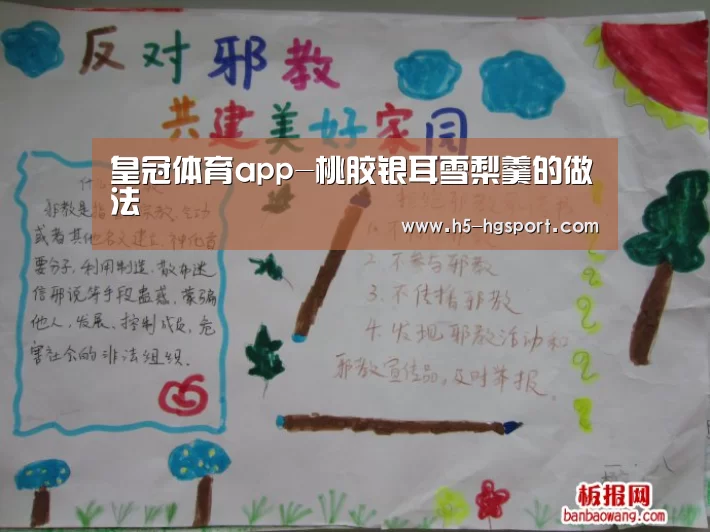 反对邪教
共建美好家园
皇冠体育app-桃胶银耳雪梨羹的做
法
www.h5-hgsport.com
邪教是指
或者其他名义建立、神化首
要分子,利用制造、散布迷
信邪说等手段蛊惑、蒙骗
他人,发展、控制成员,危
害社会的非法组织.
2.不参与邪教
3.不传播邪教
4.发现邪教活动和
邪教宣传品,及时举报.
板报网
banbaowang.com